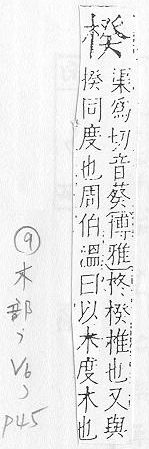 楑
渠爲切音葵博雅柊楑椎也又與
揆同度也周伯溫曰以木度木也
⑨木部, V6, P45